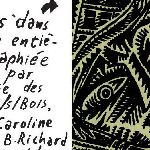 dans
entiè-
aphiée
par
e des
/s/Bois,
Caroline
B. Richard